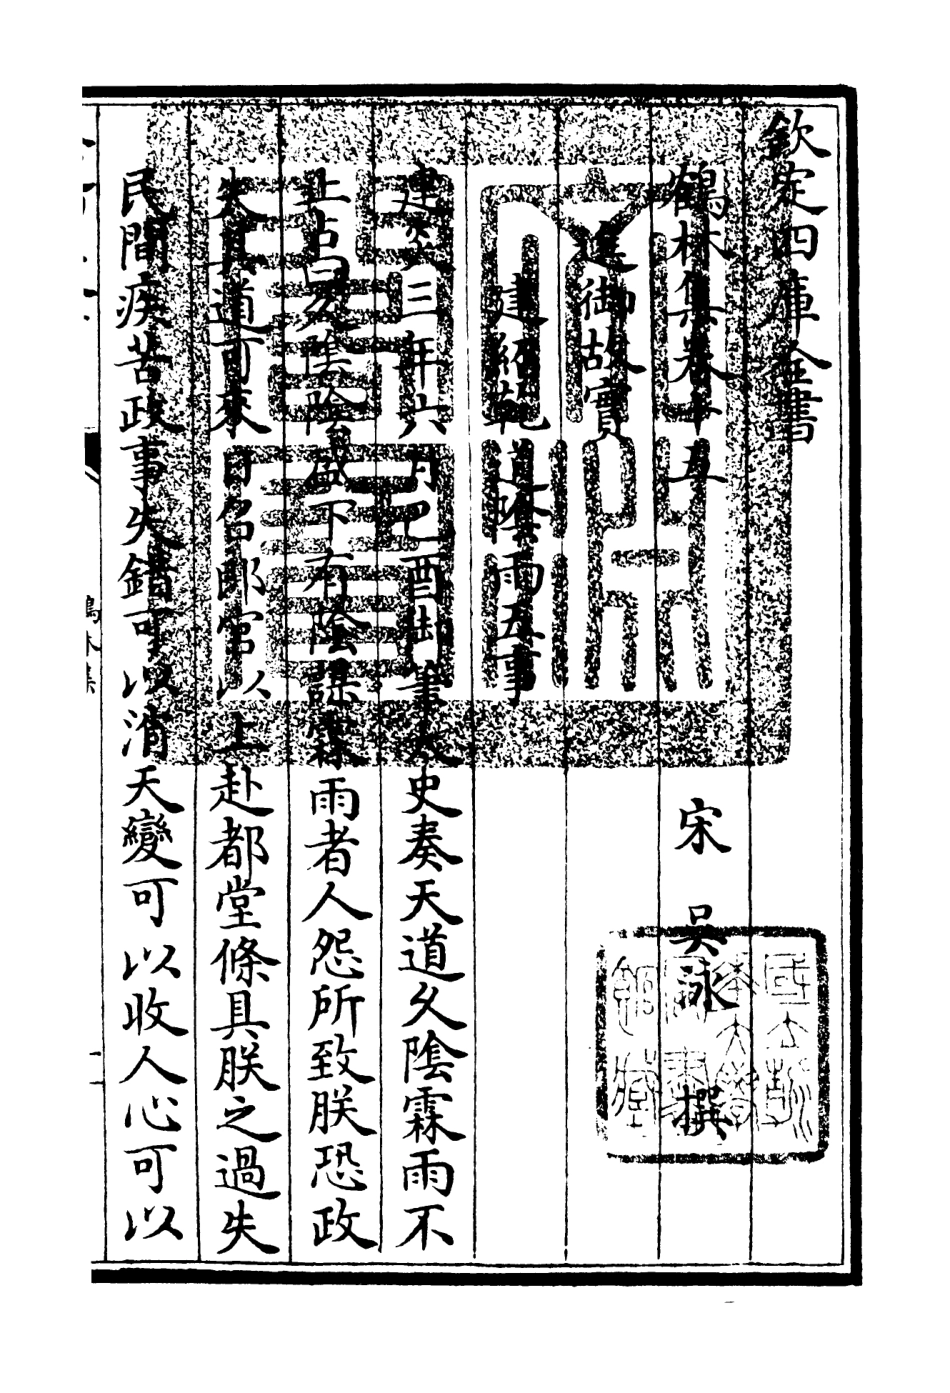 欽定四庫全書
鶴林集卷十五
宋 吳泳 撰
進御故實
建紹範道陰雨五事
建炎三年六月己酉御筆太史奏天道久陰霖雨不
止占曰久陰陰盛下有陰謀霖雨者人怨所致朕恐政
失其道可來日召郎官以上赴都堂條具朕之過失
民間疾苦政事失錯可以消天變可以收人心可以
鶴林集
一